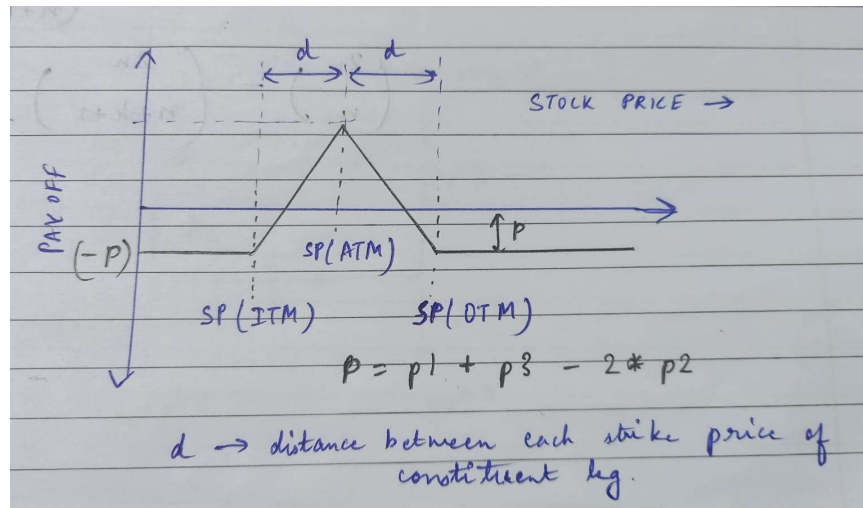 d d
STOCK PRICE →
PAYOFF
(-P)
P
SP(ATM)
SP(ITM)
SP(OTM)
P = p1 + p3 - 2* p2
d → distance between each strike price of
constituent leg.